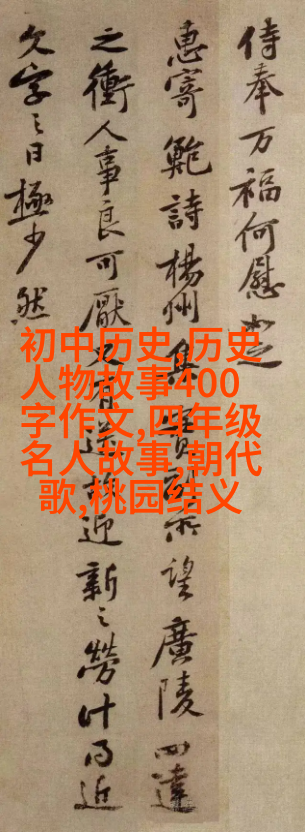 侍奉万福何慰如之
惠寄鮑詩楊州集實所望廣陵四達
之衝人事良可厭又有送故迎新之勞計得近
文字之日極少然
初中历史,历史
人物故事400
字作文,四年级
名人故事,朝代
歌,桃园结义